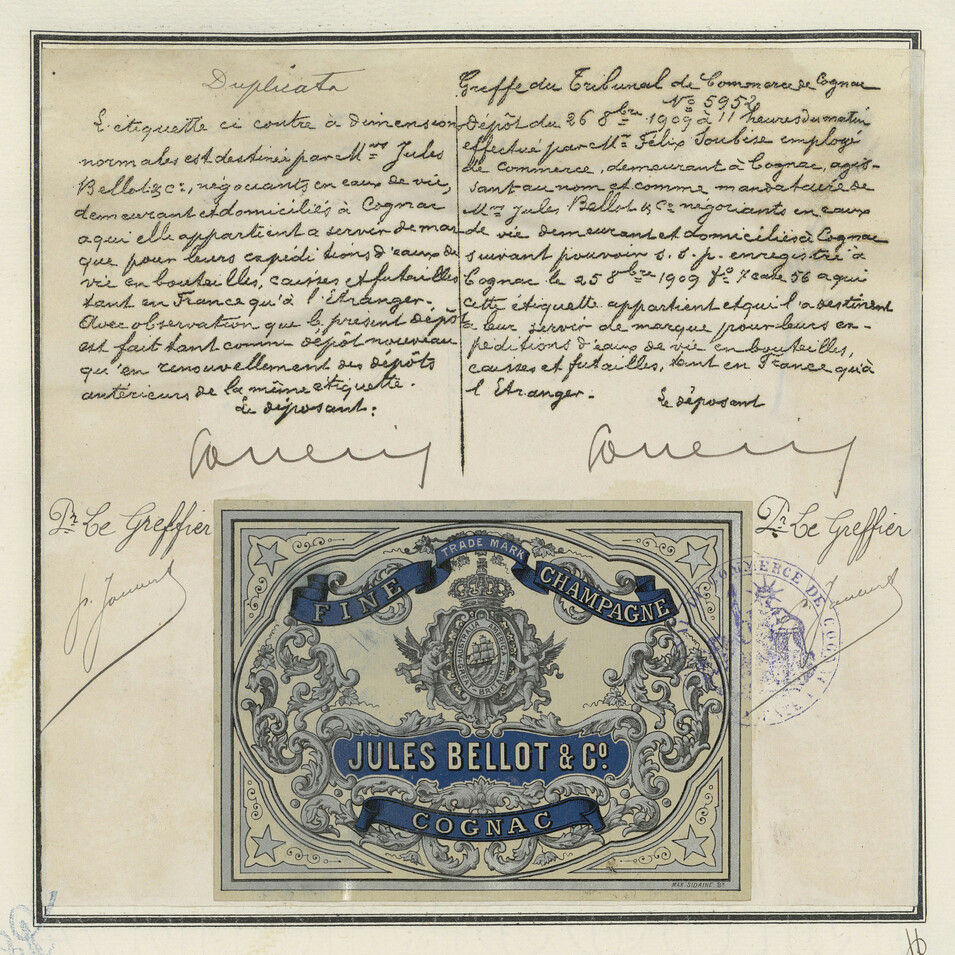 Duplicata
L'étiquette ci contre à dimensions
normales est destinée par M.rs Jules
Bellot & Cie, négociants en eaux de vie,
demeurant et domiciliés à Cognac
a qui elle appartient a servir de mar-
que pour leurs expéditions d'eaux de
vie en bouteilles, caisses et futailles
tant en France qu'à l'Etranger.
Avec observation que le présent dépôt
est fait tant comme dépôt nouveau
qu'en renouvellement des dépôts
antérieurs de la même étiquette.
Le déposant:
Greffe du Tribunal de Commerce de Cognac
No 5952
Dépôt du 26 8bre 1909 à 11 heures du matin
effectué par Mr. Félix Soubise employé
de commerce, demeurant à Cognac, agis-
sant au nom et comme mandataire de
Mrs Jules Bellot & Co négociants en eaux
de vie demeurant et domiciliés à Cognac
suivant pouvoir s. s. p. enregistré à
Cognac le 25 8bre 1909 fo 7 case 56 a qui
cette étiquette appartient et qui l'a destinent
à leur servir de marque pour leurs ex-
péditions d'eaux de vie en bouteilles,
caisses et futailles, tant en France qu'à
l'Etranger.
Le déposant
Pr Le Greffier
Pr Le Greffier
TRADE MARK
FINE CHAMPAGNE
JULES BELLOT & Co
COGNAC
COMMERCE DE COGNAC